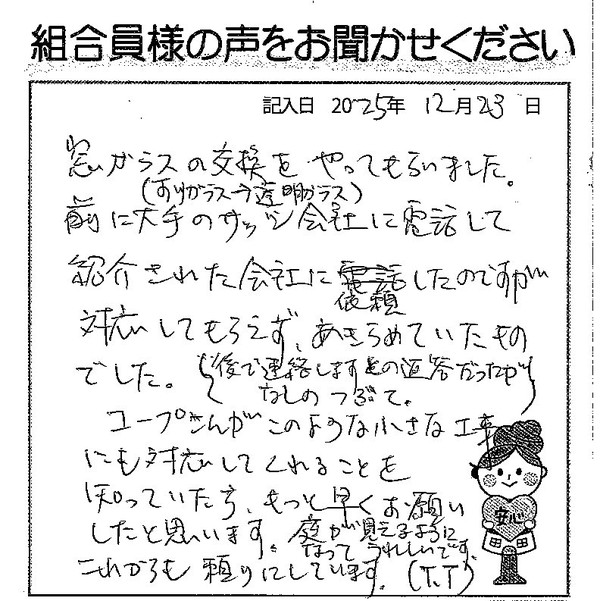 組合員様の声をお聞かせください
記入日 2025年 12月23日
窓ガラスの交換をやってもらいました。
(すりガラス→透明ガラス)
前に大手のサッシ会社に電話して
紹介された会社に電話したのですが
依頼
対応してもらえず、あきらめていたもの
でした。(後で連絡しますとの返答だったが
なしのつぶて。)
コープさんがこのような小さな工事
にも対応してくれることを
知っていたら、もっと早くお願い
したと思います。庭が見えるように
なってうれしいです。
これからも頼りにしています。(T.T)
安心